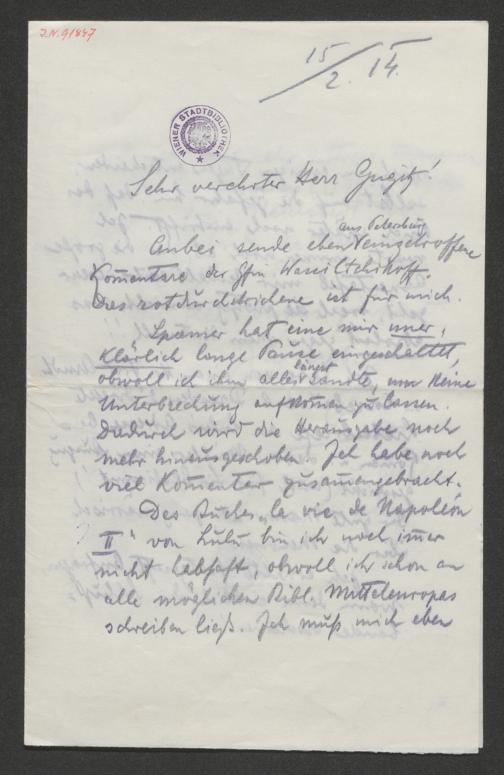 J.N. 91847
15/2. 14.
WIENER STADTBIBLIOTHEK
Sehr verehrter Herr Gugitz!
aus Petersburg
Anbei sende eben eingetroffene
Kom̄entare der Gfin Wassiltchikoff.
Das rotdurchstrichene ist für mich.
Spamer hat eine mir uner,
klärlich lange Pause eingeschaltet,
obwoll ich ihm alles längst sandte, um keine
Unterbrechung aufkom̄en zu lassen.
Dadurch wird die Herausgabe noch
mehr hinausgeschoben. Ich habe noch
viel Kom̄entar zusam̄engebracht.
Des Buches „la vie de Napoléon
II" von Lulu bin ich noch im̄er
nicht habhaft, obwoll ich schon an
alle möglichen Bibl. Mitteleuropas
schreiben ließ. Ich muß mich eben